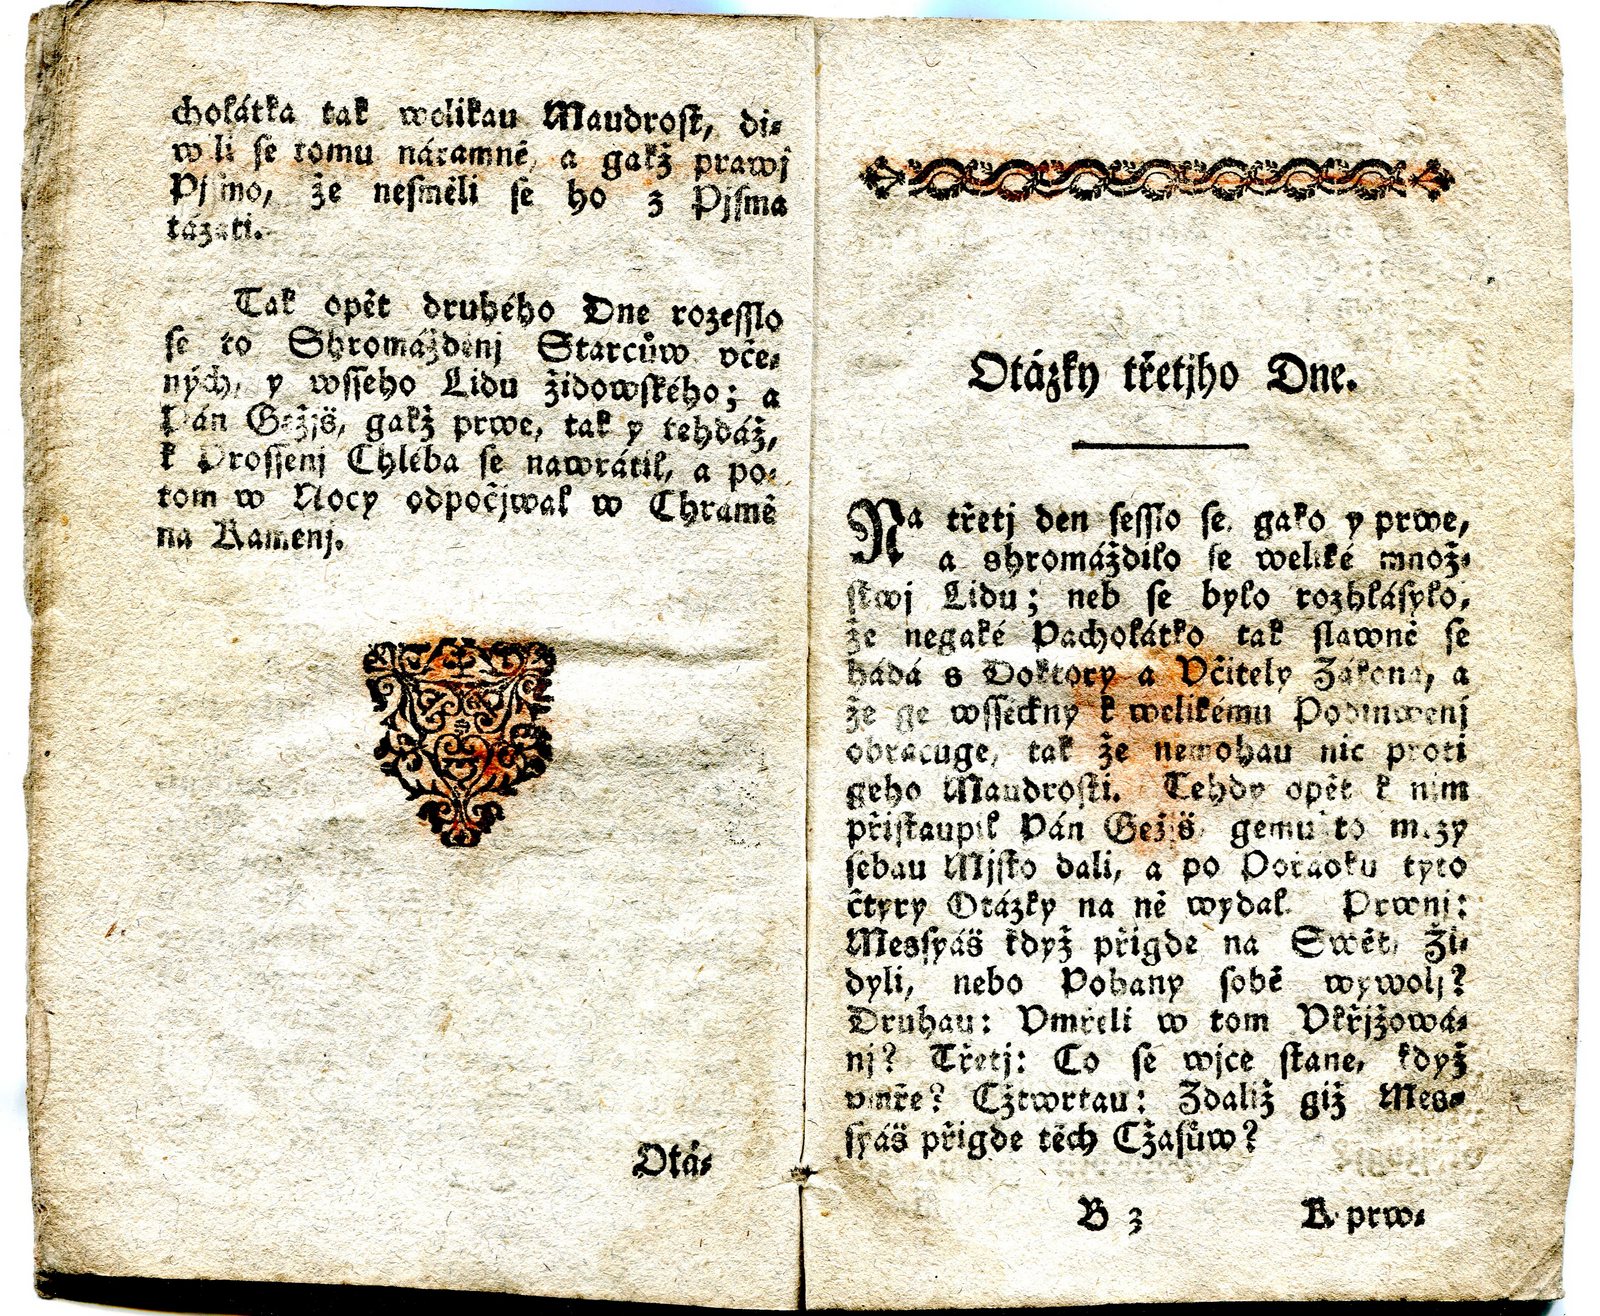 chokátka tak welikau Maudrost, di-
wili se tomu náramně, a gakž prawj
Pjsmo, že nesměli se ho z Pjsma
tázati.
Tak opět druhého Dne rozesslo
se to Shromážděnj Starcůw vče-
ných, y wsseho Lidu židowského; a
Pán Gežjš, gakž prwe, tak y tehdáž,
k Prossenj Chleba se nawrátil, a po-
tom w Nocy odpočjwal w Chramě
na Kamenj.
Otá-
Otázky třetjho Dne.
Na třetj den sesslo se, gako y prwe,
a shromáždilo se weliké množ-
stwj Lidu; neb se bylo rozhlásylo,
že negaké Pacholátko tak slawně se
hádá s Doktory a Včitely Zákona, a
že ge wssecky k welikému Podiwenj
obracuge, tak že nemohau nic proti
geho Maudrosti. Tehdy opět k nim
přistaupil Pán Gežjš, gemuž to mezy
sebau Mjsto dali, a po Pořádku tyto
čtyry Otázky na ně wydal. Prwnj:
Messyáš když přigde na Swět, Ži-
dyli, nebo Pohany sobě wywolj?
Druhau: Vmřeli w tom Vkřjžowá-
nj? Třetj: Co se wjce stane, když
vmře? Cžtwrtau: Zdaliž giž Mes-
syáš přigde těch Cžasůw?
B 3 K prw-